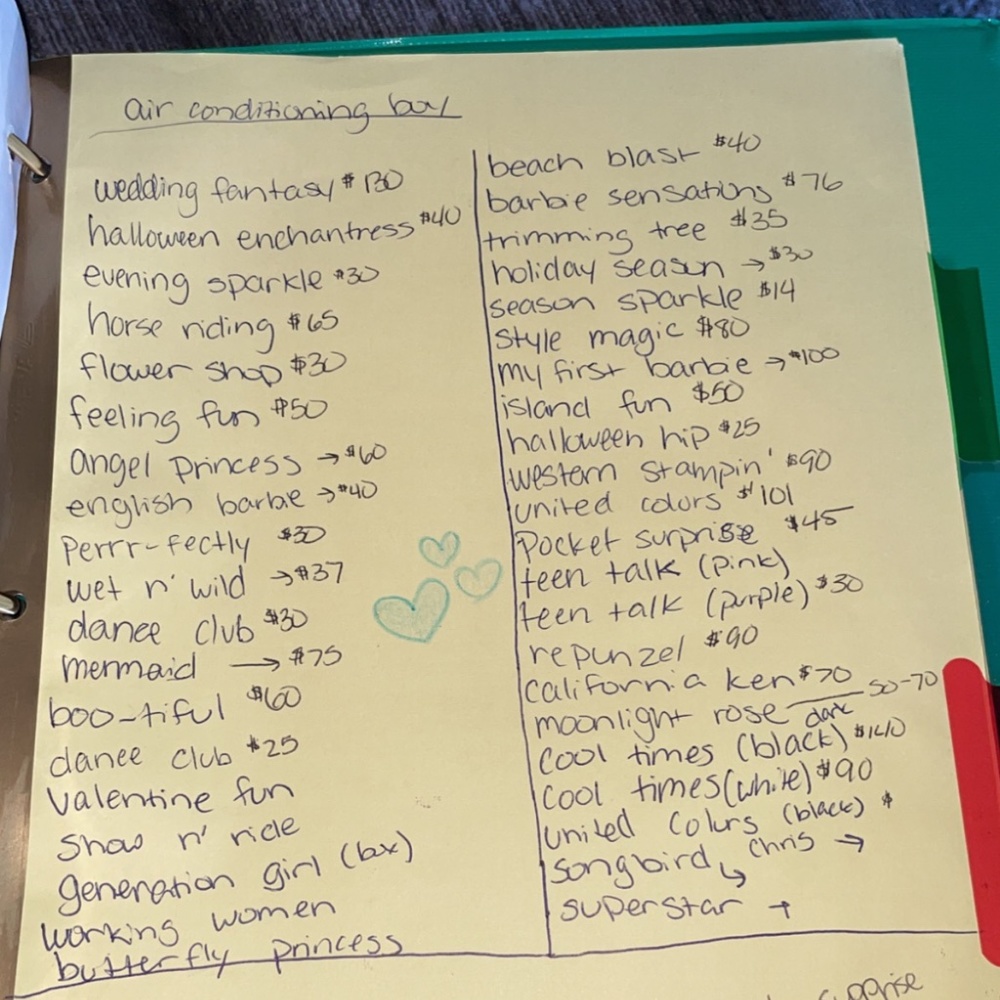 air conditioning box
wedding fantasy $130
halloween enchantress $40
evening sparkle $30
horse riding $65
flower shop $30
feeling fun $50
angel princess → $60
english barbie → $40
perrr-fectly $30
wet n' wild → $37
dance club $30
mermaid → $75
boo-tiful $60
dance club $25
valentine fun
show n' ride
generation girl (box)
working women
butterfly princess
beach blast $40
barbie sensations $76
trimming tree $35
holiday season → $30
season sparkle $14
style magic $80
my first barbie → $100
island fun $50
halloween hip $25
western stampin' $90
united colors $101
pocket surprise $45
teen talk (pink)
teen talk (purple) $30
repunzel $90
california ken $70
moonlight rose 50-70
dark
cool times (black) $140
cool times (white) $90
united colors (black) $
songbird ↳ chris →
superstar →